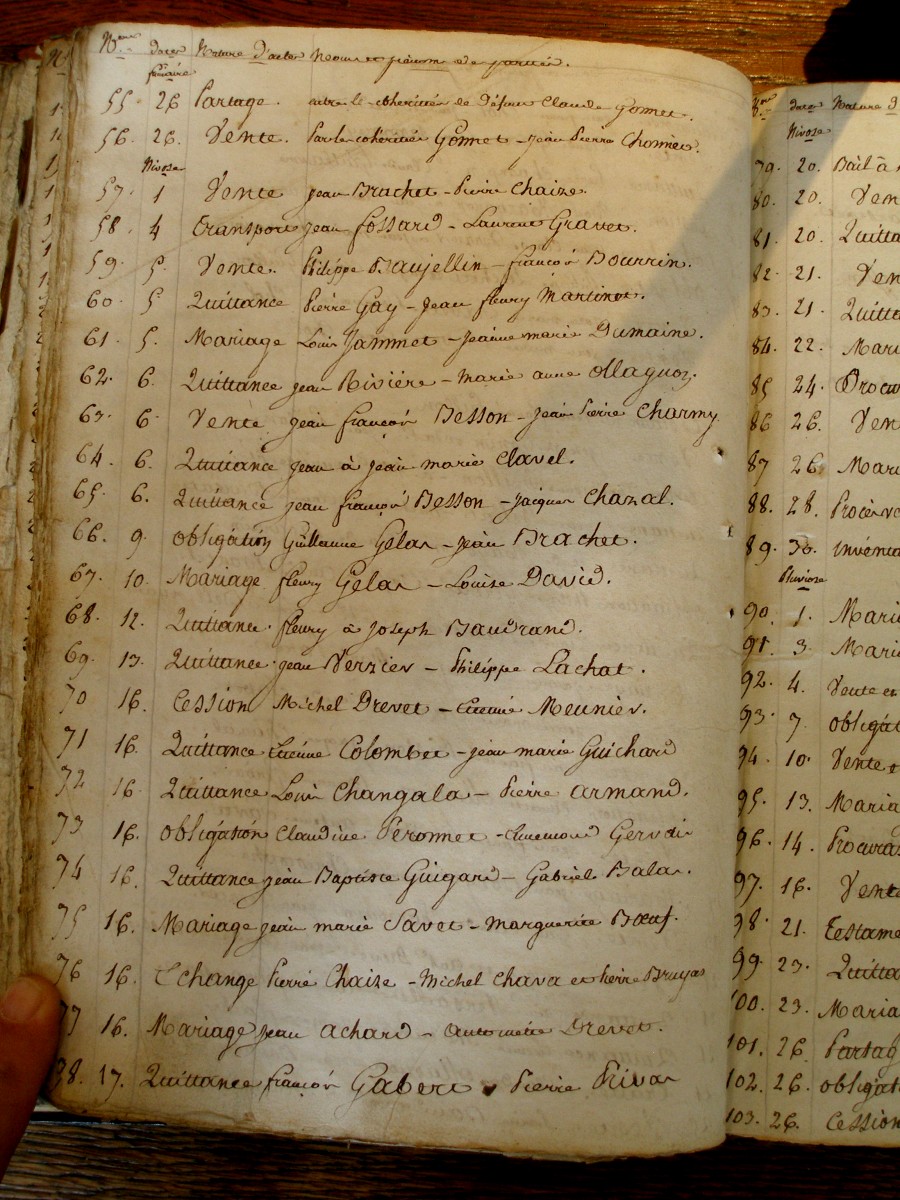 Nos dates Nature D'actes Noms et prénoms des parties.
frimaire
55 26 Partage. entre les cohéritiers de Défunt Claude Gonnet.
56. 26. Vente. Par les cohéritiers Gonnet - Jean Pierre Chomier.
Nivose
57. 1 Vente Jean Brachet - Pierre Chaize.
58. 4 Transport Jean fossard - Laurent Gravet.
59. 5. Vente. Philippe Baujellin - françois Bourrin.
60. 5 Quittance Pierre Gay - Jean fleury Martinot.
61. 5. Mariage Louis Jammet - Jeanne marie Dumaine.
62. 6. Quittance Jean Rivière - Marie anne Ollagnoz.
63. 6 Vente Jean françois Besson - Jean Pierre Charmy
64. 6. Quittance Jean à Jean marie Clavel.
65. 6. Quittance Jean françois Besson - Jacques Chazal.
66. 9. Obligation Guillaume Gelas - Jean Brachet.
67. 10. Mariage fleury Gelas - Louise David.
68. 12. Quittance. fleury à Joseph Baudrand.
69. 13. Quittance. Jean Verzier - Philippe Lachat.
70 16. Cession Michel Drevet - Etienne Meunier.
71 16. Quittance Etienne Colombet - Jean marie Guichard
72 16. Quittance Louis Changala - Pierre Armand.
73 16. Obligation Claudine Peronnet - Gervais
74 16. Quittance Jean Baptiste Guigard - Gabriel Balas.
75 16. Mariage Jean marie Savet - Marguerite Bœuf.
76 16. Echange Pierre Chaize - Michel Chava et Pierre Bruyas
77 16. Mariage Jean Achard - Antoinette Drevet.
78. 17. Quittance françois Gabert Pierre Privas
Nos dates Nature D
Nivose
79. 20. Bail à
80. 20. Ven
81. 20. Quitta
82. 21. Ven
83. 21. Quitta
84. 22. Mari
85 24. Procu
86 26. Ven
87 26. Mari
88. 28. Procès ve
89. 30. inventa
Pluviose
90. 1. Mari
91. 3. Maria
92. 4. Vente et
93. 7. Obligat
94. 10. Vente
95. 13. Maria
96. 14. Procura
97. 16. Vente
98. 21. Testame
99. 23. Quitta
100. 23. Maria
101. 26. Partag
102. 26. Obligat
103. 26. Cession